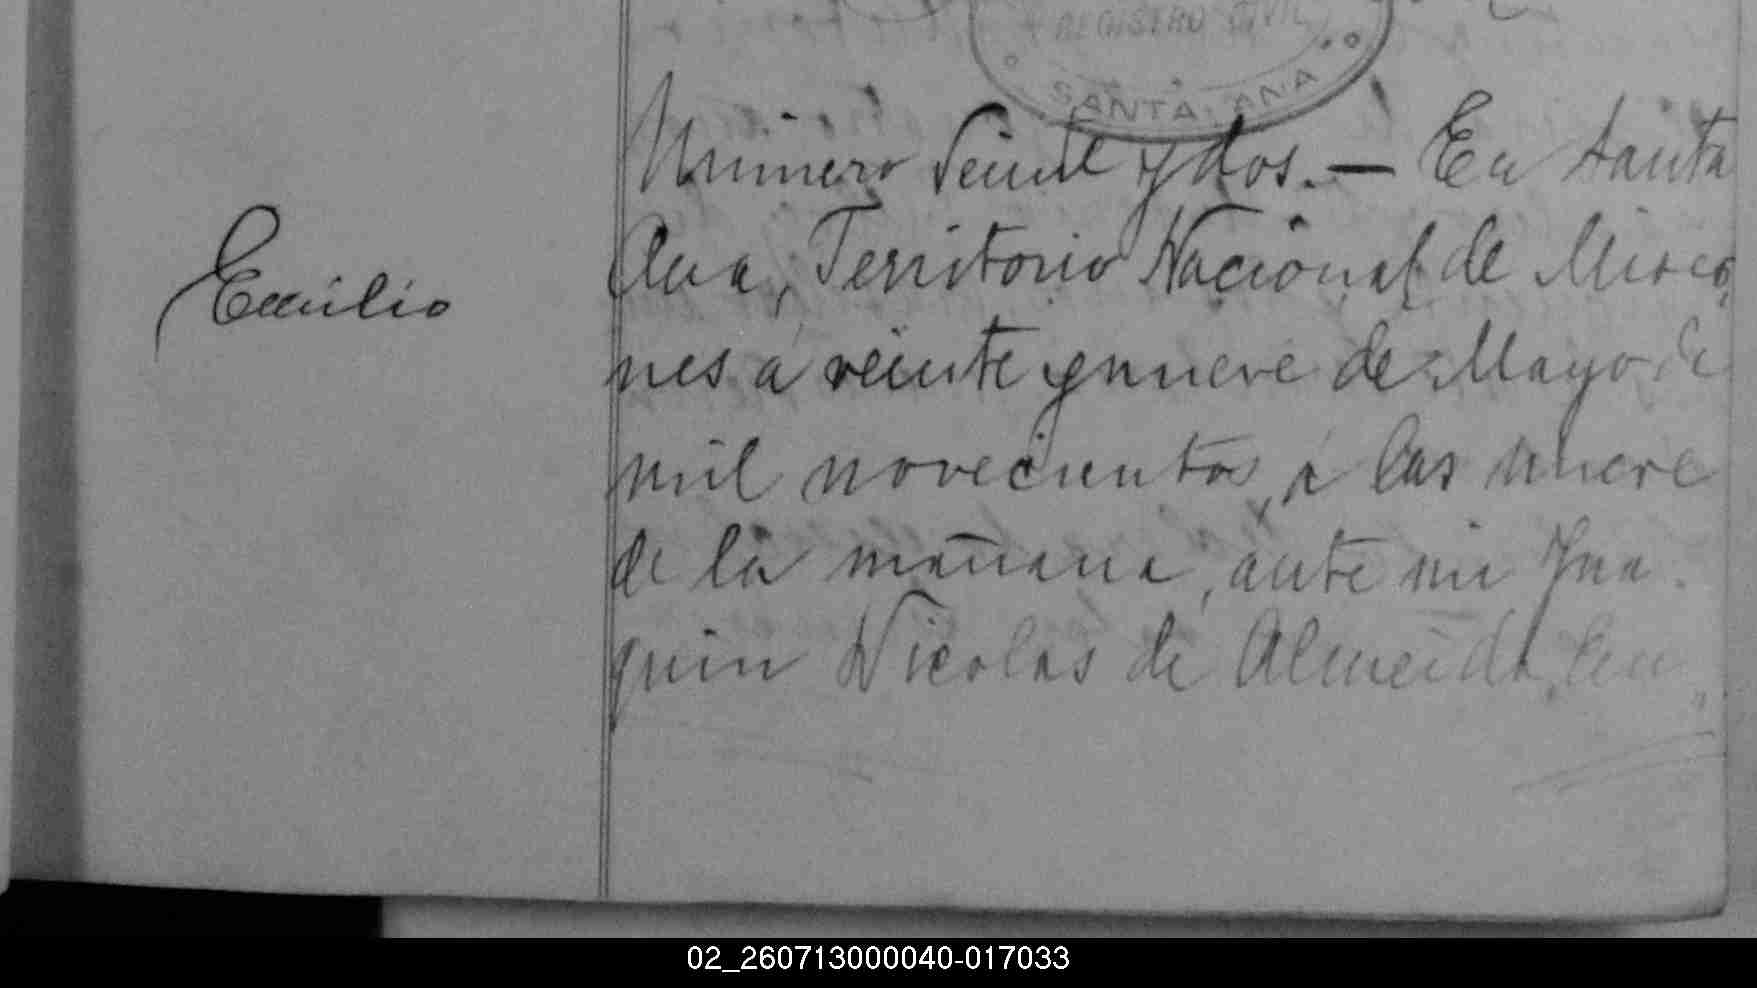 REGISTRO CIVIL
SANTA ANA
Número Veinte y dos. — En Santa
Ana, Territorio Nacional de Misio
Emilio
nes a veinte y nueve de Mayo de
mil novecientos, á las nueve
de la mañana, ante mi Joa
quin Nicolas de Almeida, En
02_260713000040-017033